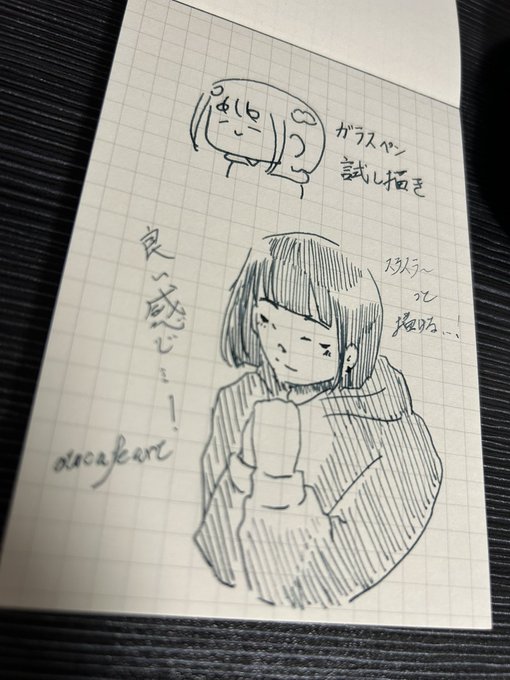 ガラスペン
試し描き
スラスラ〜
って
描ける…!
良い感じ…!